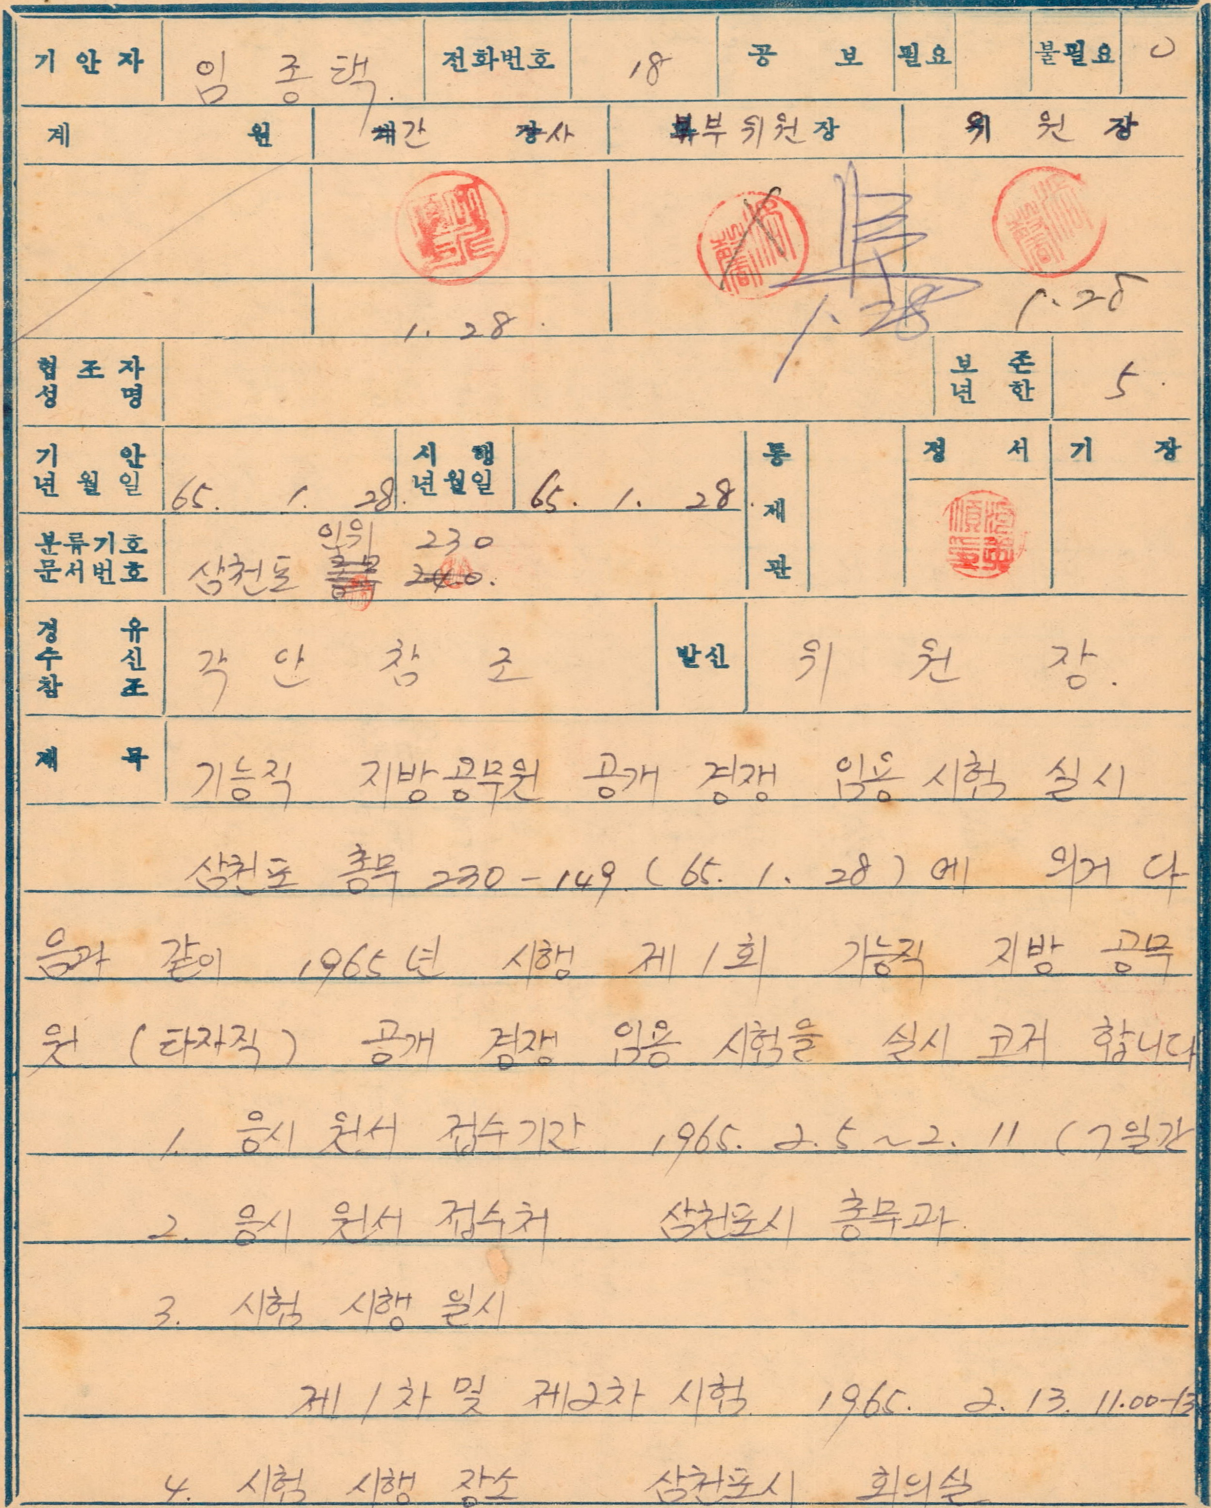 기안자 임종택. 전화번호 18 공보 필요 불필요 0
계 원 간 사 부위원장 위원장
1. 28. 1. 28 1. 28
협조자 성명 보존 년한 5.
기안 년월일 65. 1. 28. 시행 년월일 65. 1. 28. 통제관 정서 기장
인위 230
분류기호 문서번호 삼천포 총무 240.
경유 수신 참조 각 안 참 조 발신 위 원 장.
제목 기능직 지방공무원 공개 경쟁 임용 시험 실시
삼천포 총무 230-149 (65. 1. 28)에 의거 다
음과 같이 1965년 시행 제1회 기능직 지방 공무
원 (타자직) 공개 경쟁 임용 시험을 실시 코저 합니다
1. 응시 원서 접수기간 1965. 2. 5~2. 11 (7일간
2. 응시 원서 접수처. 삼천포시 총무과.
3. 시험 시행 일시
제1차 및 제2차 시험 1965. 2. 13. 11.00-13
4. 시험 시행 장소 삼천포시 회의실